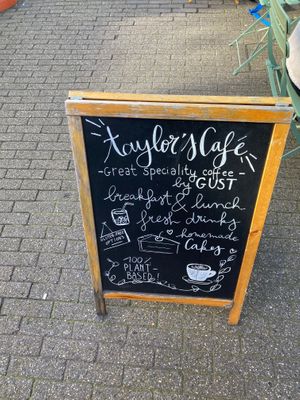 taylor's Café
- Great speciality coffee -
by GUST
breakfast & lunch
fresh drinks
GLUTEN FREE
OPTIONS
homemade
cakes
100%
PLANT-
BASED!